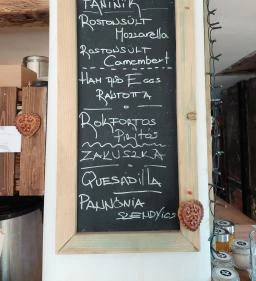 PANINIK
ROSTONSÜLT
MOZZARELLA
ROSTONSÜLT
CAMEMBERT
HAM AND EGGS
RÁNTOTTA
ROKFORTOS
PIRÍTÓS
ZAKUSZKA
QUESADILLA
PANNÓNIA
SZENDVICS